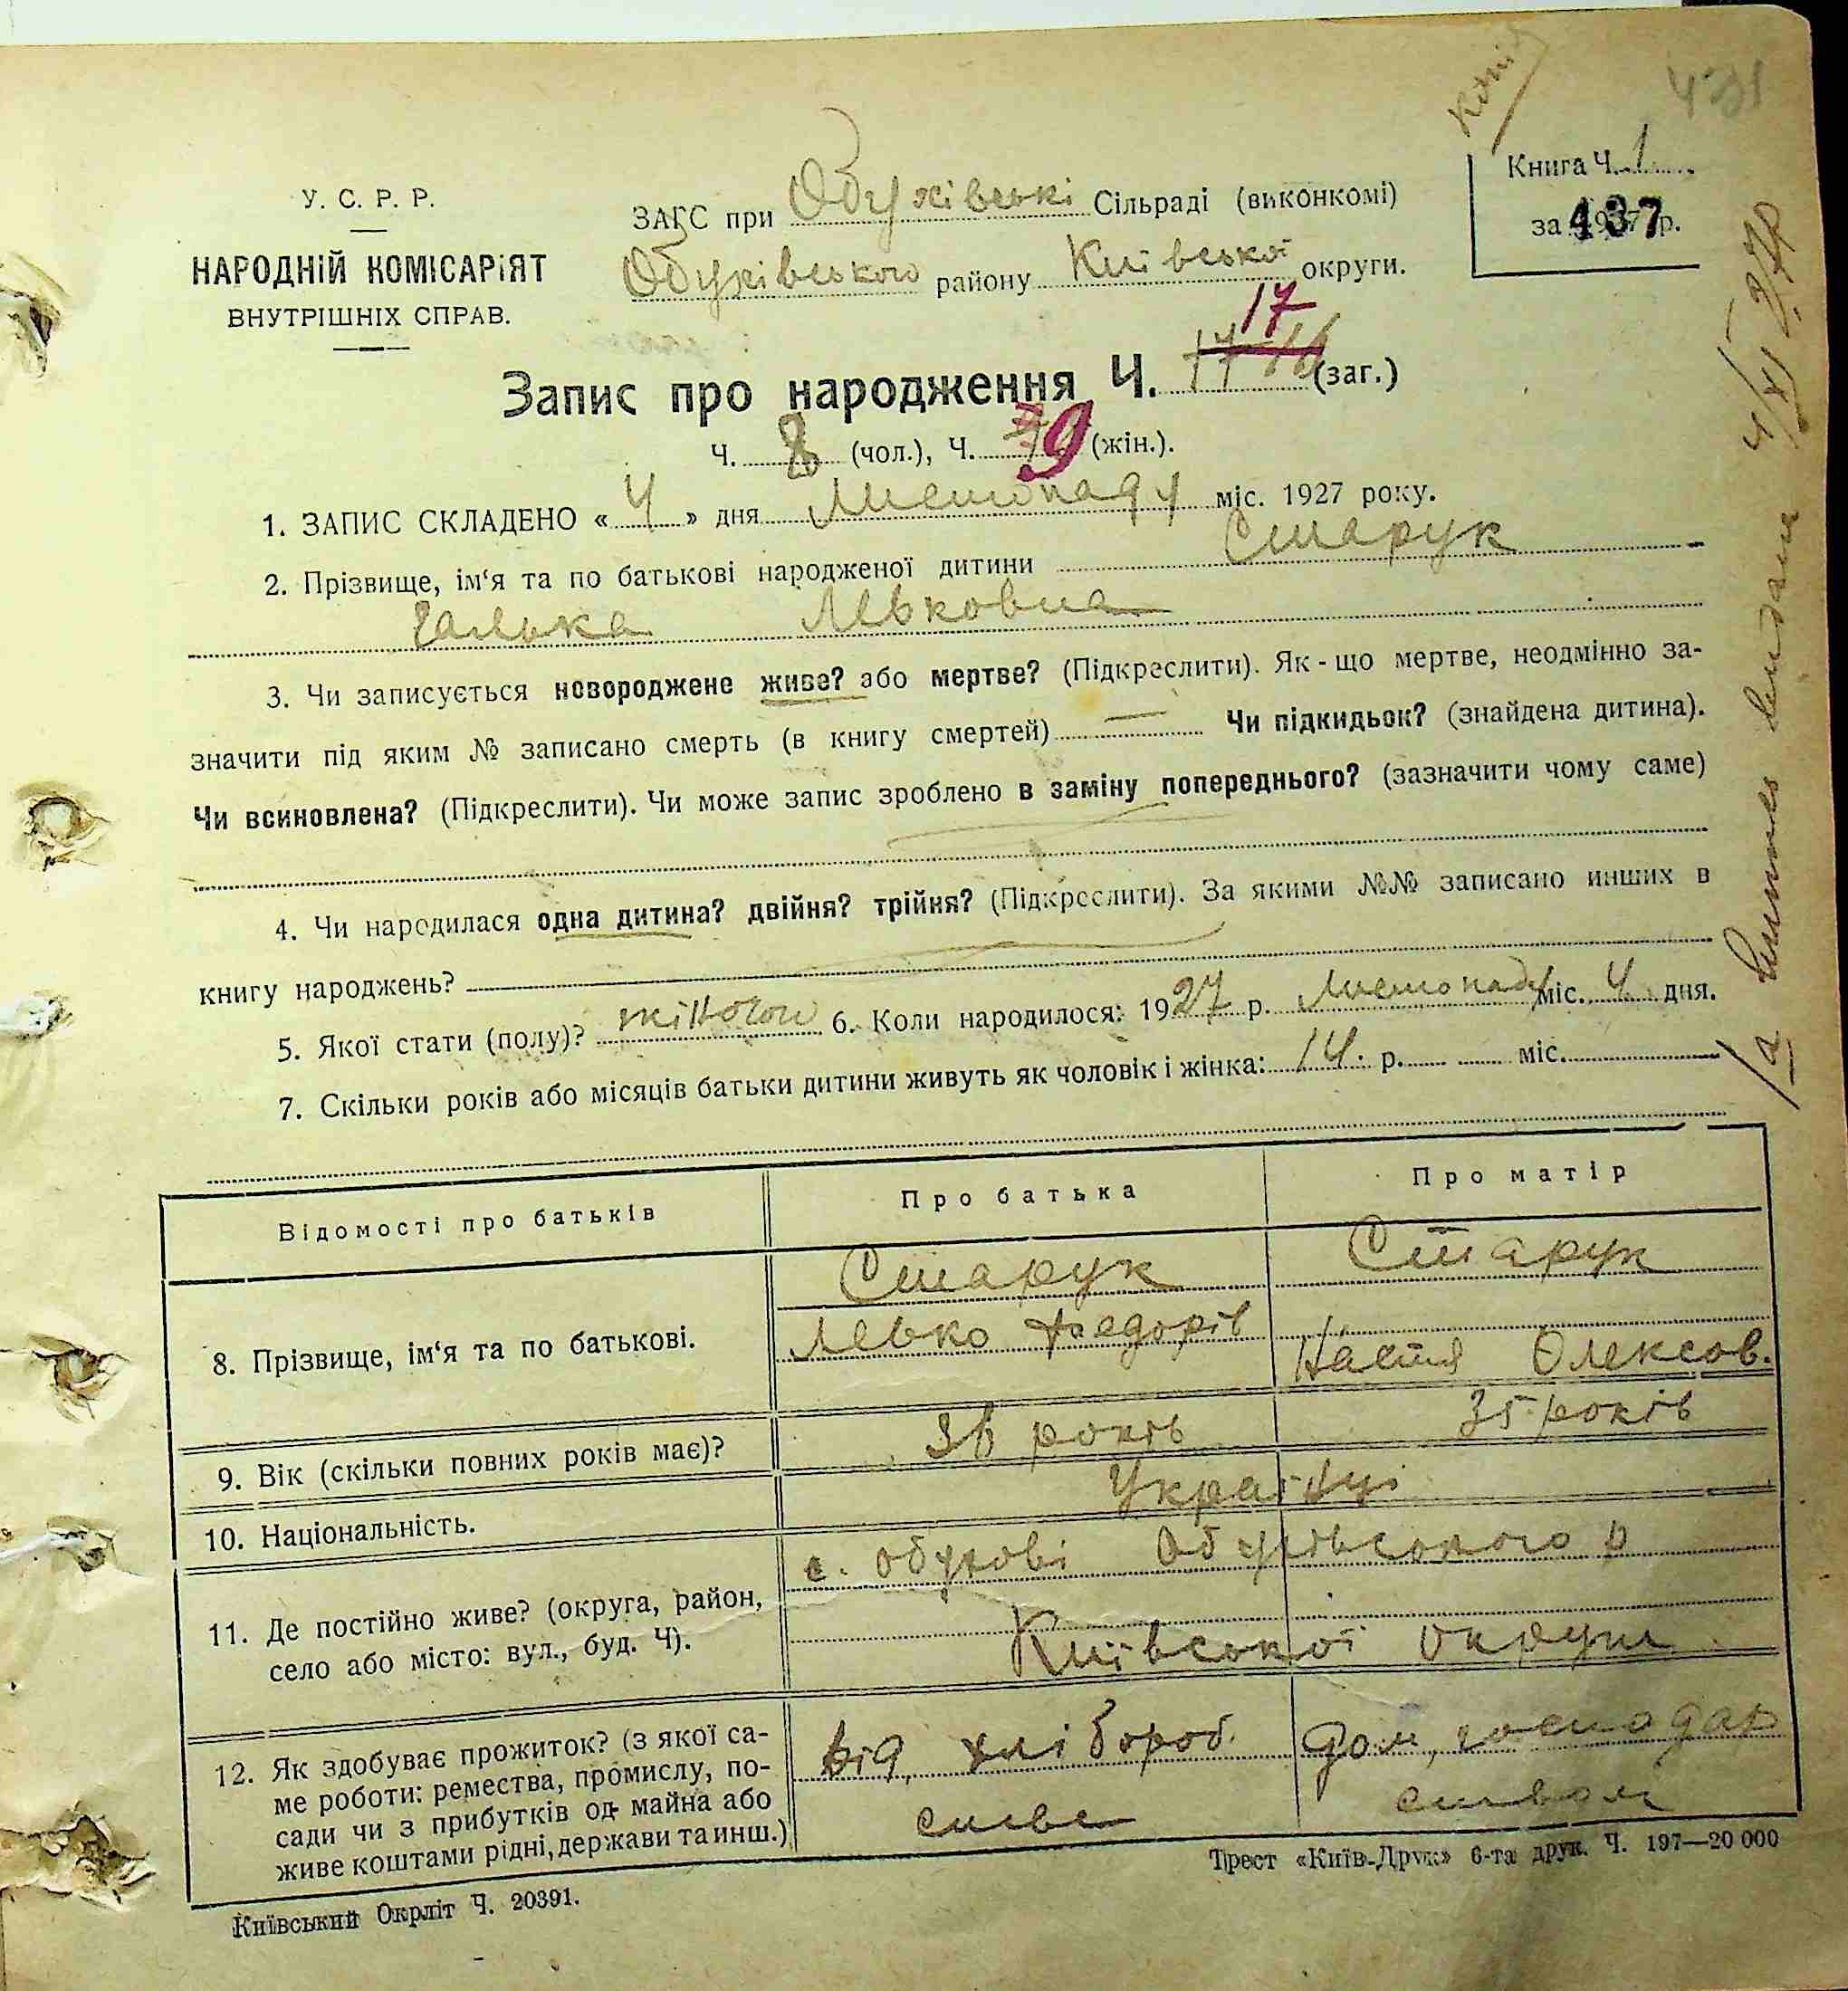 Копія
431
У. С. Р. Р.
НАРОДНІЙ КОМІСАРІЯТ
ВНУТРІШНІХ СПРАВ.
ЗАГС при Обухівські Сільраді (виконкомі)
Обухівського району Київської округи.
Книга Ч. 1
за 1927 р.
437
17
Запис про народження Ч. 17 16 (заг.)
Ч. 8 (чол.), Ч. 9 (жін.).
1. ЗАПИС СКЛАДЕНО « 4 » дня Листопаду міс. 1927 року.
2. Прізвище, ім‘я та по батькові народженої дитини Старук
Галька Левковна
3. Чи записується новороджене живе? або мертве? (Підкреслити). Як-що мертве, неодмінно за-
значити під яким № записано смерть (в книгу смертей) — Чи підкидьок? (знайдена дитина).
Чи всиновлена? (Підкреслити). Чи може запис зроблено в заміну попереднього? (зазначити чому саме)
4. Чи народилася одна дитина? двійня? трійня? (Підкреслити). За якими №№ записано инших в
книгу народжень?
5. Якої стати (полу)? жіночої 6. Коли народилося: 1927 р. Листопаду міс. 4 дня.
7. Скільки років або місяців батьки дитини живуть як чоловік і жінка: 14 р. міс.
Відомості про батьків Про батька Про матір
8. Прізвище, ім‘я та по батькові.
Старук Старук
Левко Федорів Настя Олексов.
9. Вік (скільки повних років має)? 36 років 35 років
10. Національність. Українці
11. Де постійно живе? (округа, район,
село або місто: вул., буд. Ч).
с. Обухові Обухівського р
Київської округи
12. Як здобуває прожиток? (з якої са-
ме роботи: ремества, промислу, по-
сади чи з прибутків од майна або
живе коштами рідні, держави та инш.)
від хлібороб. дом, господар
ства ством
Київський Окрліт Ч. 20391.
Трест «Київ-Друк» 6-та друк. Ч. 197—20 000